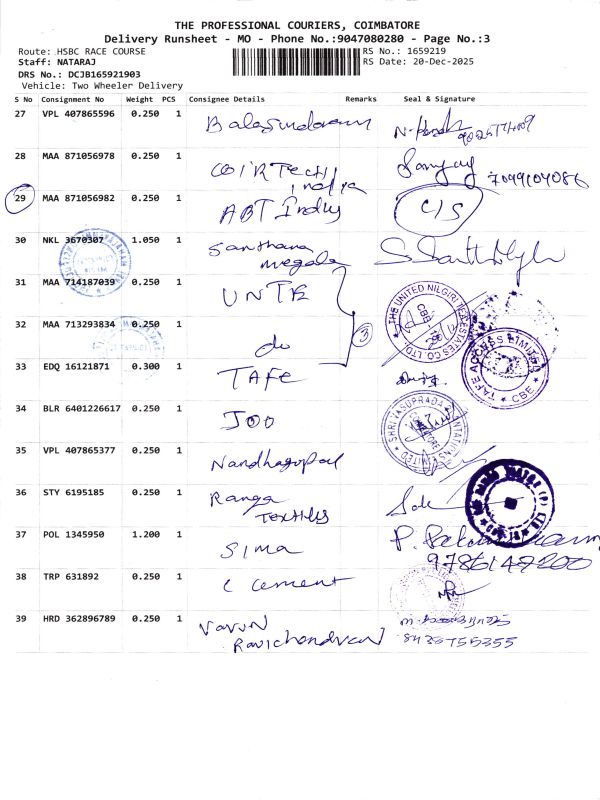 THE PROFESSIONAL COURIERS, COIMBATORE
Delivery Runsheet - MO - Phone No.:9047080280 - Page No.:3
Route: HSBC RACE COURSE
RS No.: 1659219
Staff: NATARAJ
RS Date: 20-Dec-2025
DRS No.: DCJB165921903
Vehicle: Two Wheeler Delivery
S No Consignment No Weight PCS Consignee Details Remarks Seal & Signature
27 VPL 407865596 0.250 1
28 MAA 871056978 0.250 1 COIRTech India Sanjay 7099104086
29 MAA 871056982 0.250 1 ABT Indus C/S
30 NKL 3670307 1.050 1 Santhana Megala
31 MAA 714187039 0.250 1 UNTE
THE UNITED NILGIRI TEA ESTATES CO. LTD. CBE
32 MAA 713293834 0.250 1 do
3
33 EDQ 16121871 0.300 1 TAFE
TAFE ACCESS LIMITED CBE
34 BLR 6401226617 0.250 1 JOO
35 VPL 407865377 0.250 1 Nandhagopal
36 STY 6195185 0.250 1 Ranga Textiles
37 POL 1345950 1.200 1 SIMA P. 9786149200
38 TRP 631892 0.250 1 C Cement
39 HRD 362896789 0.250 1 Varun Ravichandran
8438755355